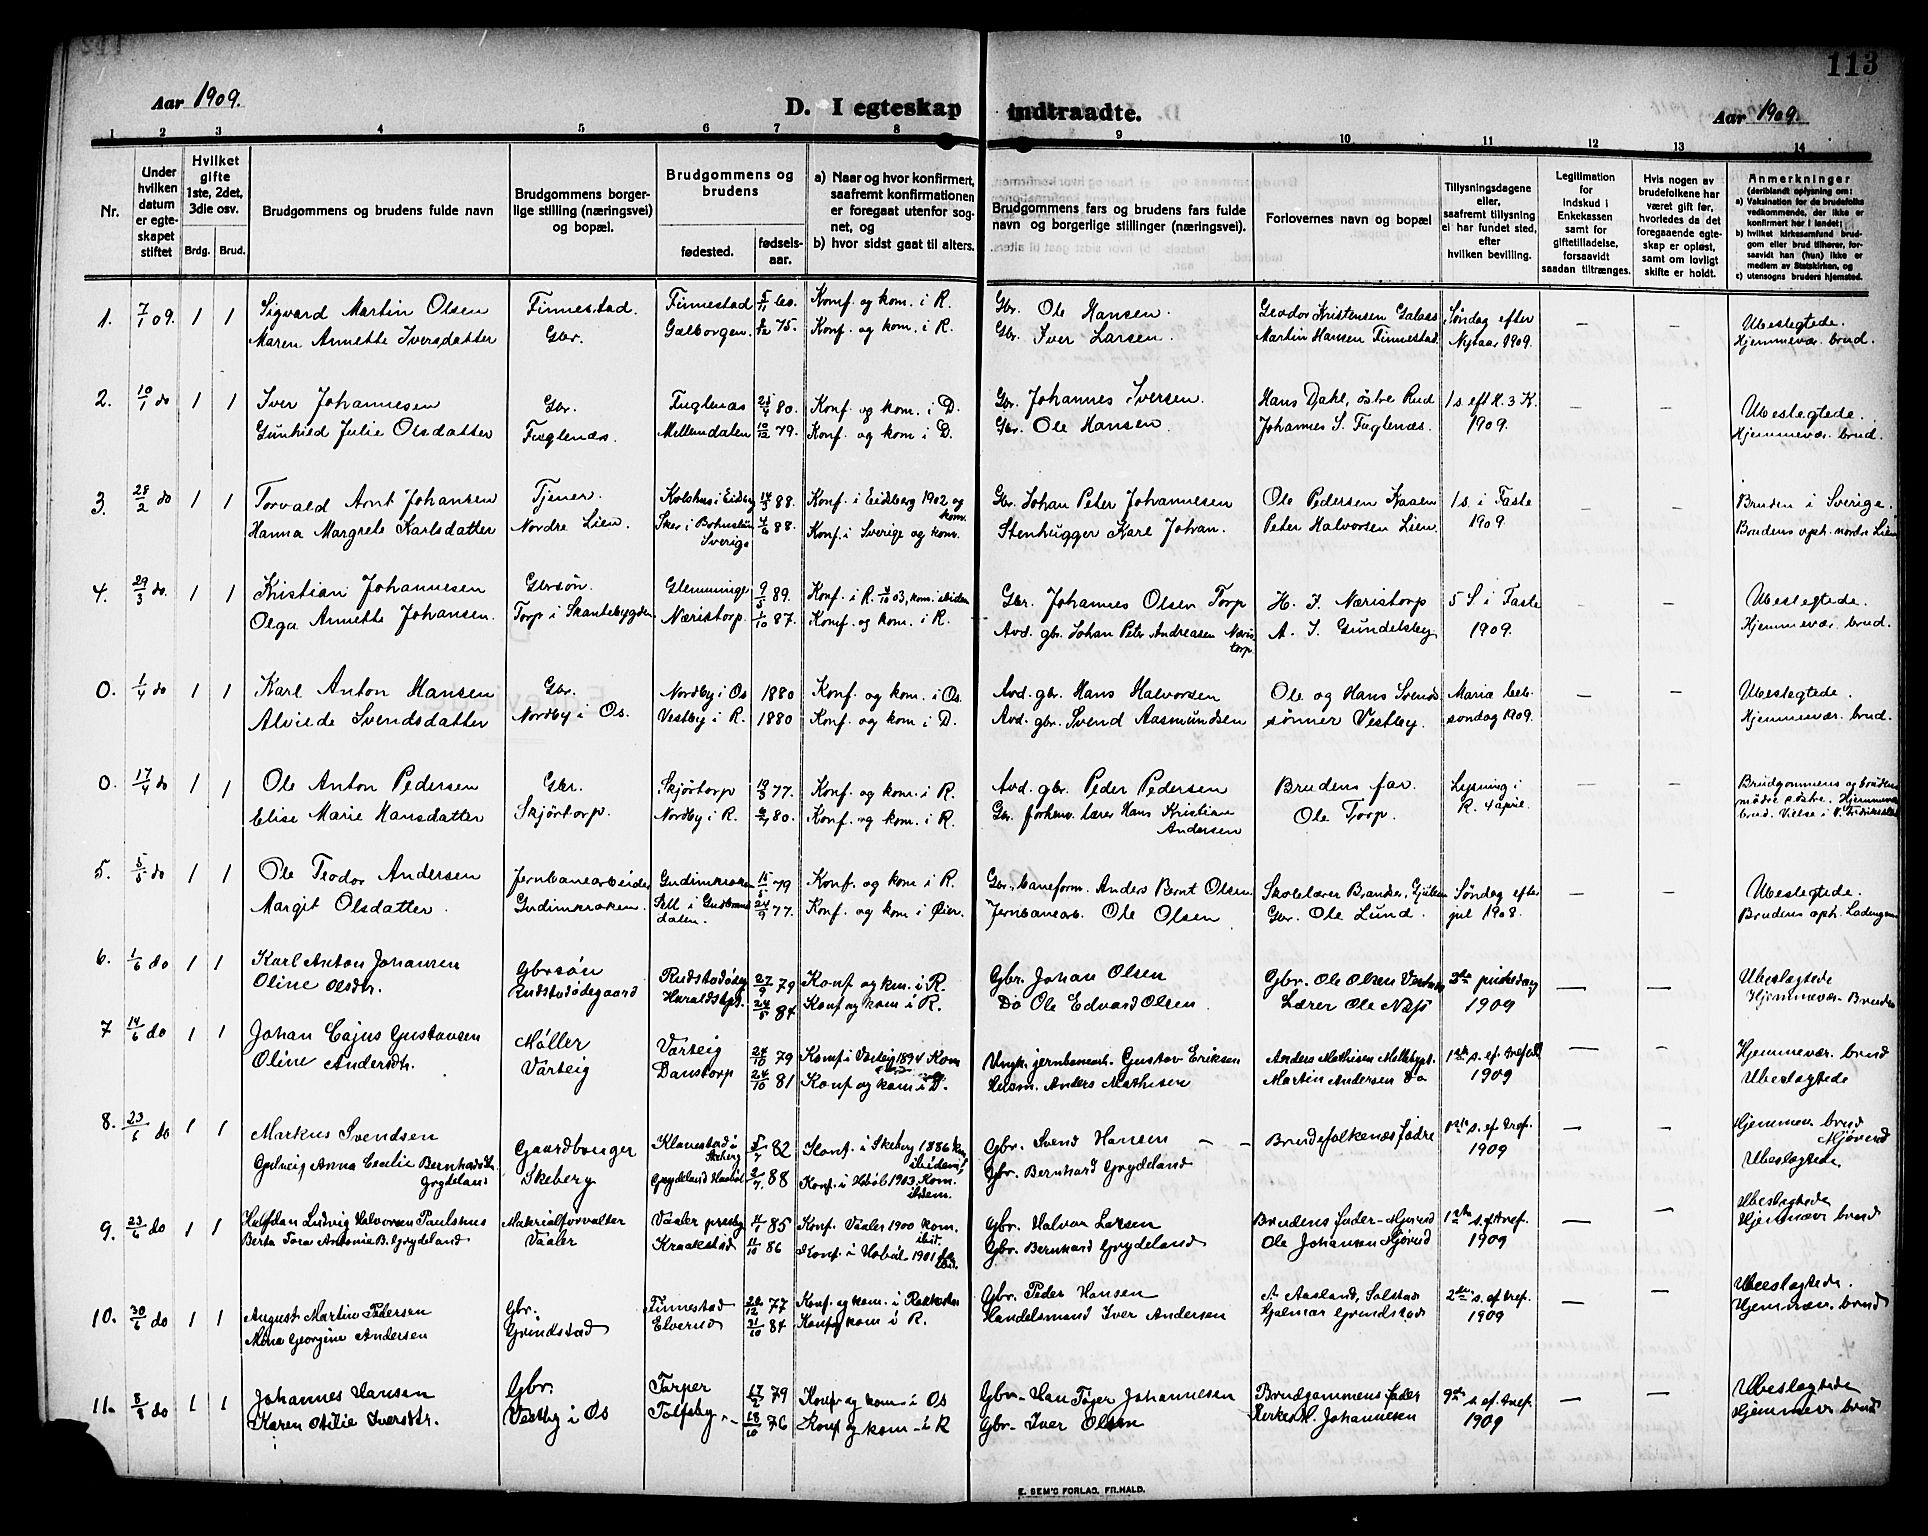 113
Aar 1909.
D. I egteskap indtraadte.
Aar 1909.
1 2 3 4 5 6 7 8 9 10 11 12 13 14
Nr.
Under hvilken datum er egteskapet stiftet
Hvilket gifte 1ste, 2det, 3die osv.
Brdg. Brud.
Brudgommens og brudens fulde navn
Brudgommens borgerlige stilling (næringsvei) og bopæl.
Brudgommens og brudens
fødested.
fødselsaar.
a) Naar og hvor konfirmert, saafremt konfirmationen er foregaat utenfor sognet, og
b) hvor sidst gaat til alters.
Brudgommens fars og brudens fars fulde navn og borgerlige stillinger (næringsvei).
Forlovernes navn og bopæl
Tillysningsdagene eller, saafremt tillysning ei har fundet sted, efter hvilken bevilling.
Legitimation for indskud i Enkekassen samt for giftetilladelse, forsaavidt saadan tiltrænges.
Hvis nogen av brudefolkene har været gift før, hvorledes da det foregaaende egteskap er opløst, samt om lovligt skifte er holdt.
Anmerkninger
(deriblandt oplysning om:
a) Vaksination for de brudefolks vedkommende, der ikke er konfirmert her i landet;
b) hvilket kirkesamfund brudgom eller brud tilhører, forsaavidt han (hun) ikke er medlem av Statskirken, og
c) utensogns bruders hjemsted.
1. 7/1 09. 1 1 Sigvard Martin Olsen Finnestad. Finnestad 5/11 60. Konf. og kom. i R. Gbr. Ole Hansen. Teodor Kristensen Galaas Søndag efter — — Ubeslegtede.
Maren Annette Iversdatter Gbr. Galborgen 75. Konf. og kom. i R. Gbr. Iver Larsen. Martin Hansen Finnestad. Nytaar 1909. Hjemmevær. brud.
2. 10/1 do 1 1 Iver Johannesen Gbr. Fuglenæs 80. Konf. og kom. i D. Gbr. Johannes Iversen. Hans Dahl, østre Rud 1 s. eft. H. 3 K. — — Ubeslegtede.
Gunhild Julie Olsdatter Fuglenæs. Mellemdalen 10/12 79. Konf. og kom. i D. Gbr. Ole Hansen. Johannes S. Fuglenæs. 1909. Hjemmevær. brud.
3. 28/2 do 1 1 Torvald Arnt Johansen Tjener. Kolshus i Eidberg 14/3 88. Konf. i Eidsberg 1902 og kom. Gbr. Johan Peter Johannesen Ole Pedersen Kaaen 1 s. i Faste — — Bruden i Sverige.
Hanna Margrete Karlsdatter Nordre Lien. Skee i Bohuslen Sverige 4/6 88. Konf. i Sverige og kom. Stenhugger Karl Johan. Peter Halvorsen Lien. 1909. Brudens oph. nordre Lien
4. 29/3 do. 1 1 Kristian Johannesen Gbrsøn. Glenninge 9/5 89. Konf. i R. 03, kom. ibidem Gbr. Johannes Olsen Torp H. J. Næristorp 5 S i Faste — — Ubeslegtede.
Olga Annette Johansen. Torp i Skantebygden Næristorp. 1/10 87. Konf. og kom. i R. Avd. gbr. Johan Peter Andreasen Næristorp A. J. Gundelsby 1909. Hjemmevær. brud.
0. 1/4 do 1 1 Karl Anton Hansen Gbr. Nordby i Os 1880 Konf. og kom. i Os. Avd. gbr. Hans Halvorsen Ole og Hans Svends Maria beb. — — Ubeslegtede.
Alvilde Svendsdatter Nordby i Os. Vestby i R. 1880 Konf. og kom. i D. Avd. gbr. Svend Aasmundsen sønner Vestby. søndag 1909. Hjemmevær. brud.
0. 17/4 do 1 1 Ole Anton Pedersen Gbr. Skjørtorp 19/3 77. Konf. og kom. i R. Avd. gbr. Peder Pedersen Brudens far. Lysning i — — Brudgommens og brudens
Elise Marie Hansdatter Skjørtorp. Nordby i R. 80. Konf. og kom. i R. Gbr. forhenv. lærer Hans Kristian Andersen Ole Torp. R. 4 april. mødre søstre. Hjemmevær. brud. Vielse i V. Fredrikshald
5. 5/5 do 1 1 Ole Teodor Andersen Jernbanearbeider Gudimkroken 15/5 79 Konf. og kom. i R. Gbr. baneform. Anders Bernt Olsen Skolelærer Brander, Gjulem Søndag efter — — Ubeslegtede.
Margit Olsdatter. Gudimkroken. i Gudbrandsdalen. 24/9 77. Konf. og kom. i Øier. Jernbanearb. Ole Olsen Gbr. Ole Lund. jul 1908. Brudens oph. Ladengen
6. 1/6 do 1 1 Karl Anton Johansen Gbrsøn Rudstadødeg. 27/9 79 Konf og kom. i R. Gbr. Johan Olsen Gbr. Ole Olsen pinsedag — — Ubeslegtede
Oline Olsdtr. Rudstadødegaard Haraldstp. 24/5 84 Konf og kom i R. Do Ole Edvard Olsen Lærer Ole Næss 1909 Hjemmevær. Bruden
7 14/6 do 1 1 Johan Cajus Gustavsen Møller Varteig 24/10 79 Konf i Varteig 1894 Kom Gustav Eriksen Anders Mathisen 1ste s. ef. trefol — — Hjemmevær. brud
Oline Andersdtr. Varteig Danstorp 24/10 81 Konf og kom i D. Husm. Anders Mathisen Martin Andersen Do 1909 Ubeslegtede
8. 23/6 do 1 1 Markus Svendsen Gaardbruger Klavestad i Skeberg 82 Konf. i Skeberg 1886 kom ibidem Gbr. Svend Hansen — — Brudefolkenes fædre 1ste s. ef. tref. — — Hjemmev. brud Mjørud
Anna Cecilie Bernhardsdtr. Grydeland Skeberg Grydeland Haabøl 2/7 88 Konf. i Hobøl 1903 Kom. ibidem. Gbr. Bernhard Grydeland 1909 Ubeslegtede
9. 23/6 do 1 1 Halfdan Ludvig Halvorsen Paulshus Materialforvalter Vaaler 85 Konf. Vaaler 1900 kom. ibid. Gbr. Halvor Larsen Brudens fader – Mjørud 1ste s. ef. tref. — — Ubeslegtede
Berta Tora Antonie B. Grydeland Vaaler Kraakstad 11/10 86 Konf. i Hobøl 1901 do ibid. Gbr. Bernhard Grydeland Ole Johansen Mjørud 1909 Hjemmev. brud
10. 30/6 do 1 1 August Martin Pedersen Gbr. Finnestad 77 Konf. og kom. i Rakkestad Gbr. Peder Hansen A Aasland, Solstad 2den s. ef tref. — — Ubeslegtede.
Mina Georgine Andersen Grindstad Elverud 21/10 84 Konf og kom i R. Handelsmand Iver Andersen Hjelmar Grindstad 1909 Hjemmev. brud
11. 8/8 do 1 1 Johannes Hansen Gbr. Tarper 17/2 79 Konf og kom. i Os Gbr. Johannesen Brudgommens fader 9de s. ef. tref. — — Ubeslegtede
Karen Otilie Iversdtr. Vestby i Os Tolfsby 18/10 76 Konf og kom – i R Gbr. Iver Olsen Johannesen 1909 Hjemmev. brud
E. SEM'S FORLAG, FR.HALD.